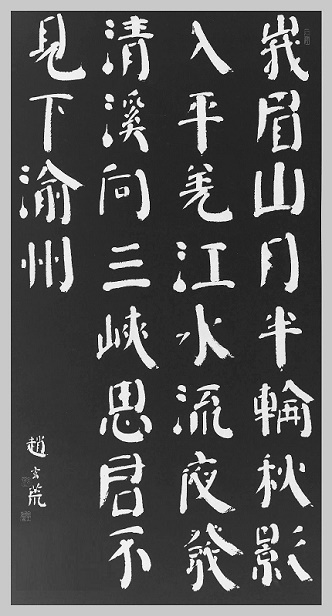 峩眉山月半輪秋影
入平羌江水流夜發
清溪向三峽思君不
見下渝州
趙玄荒